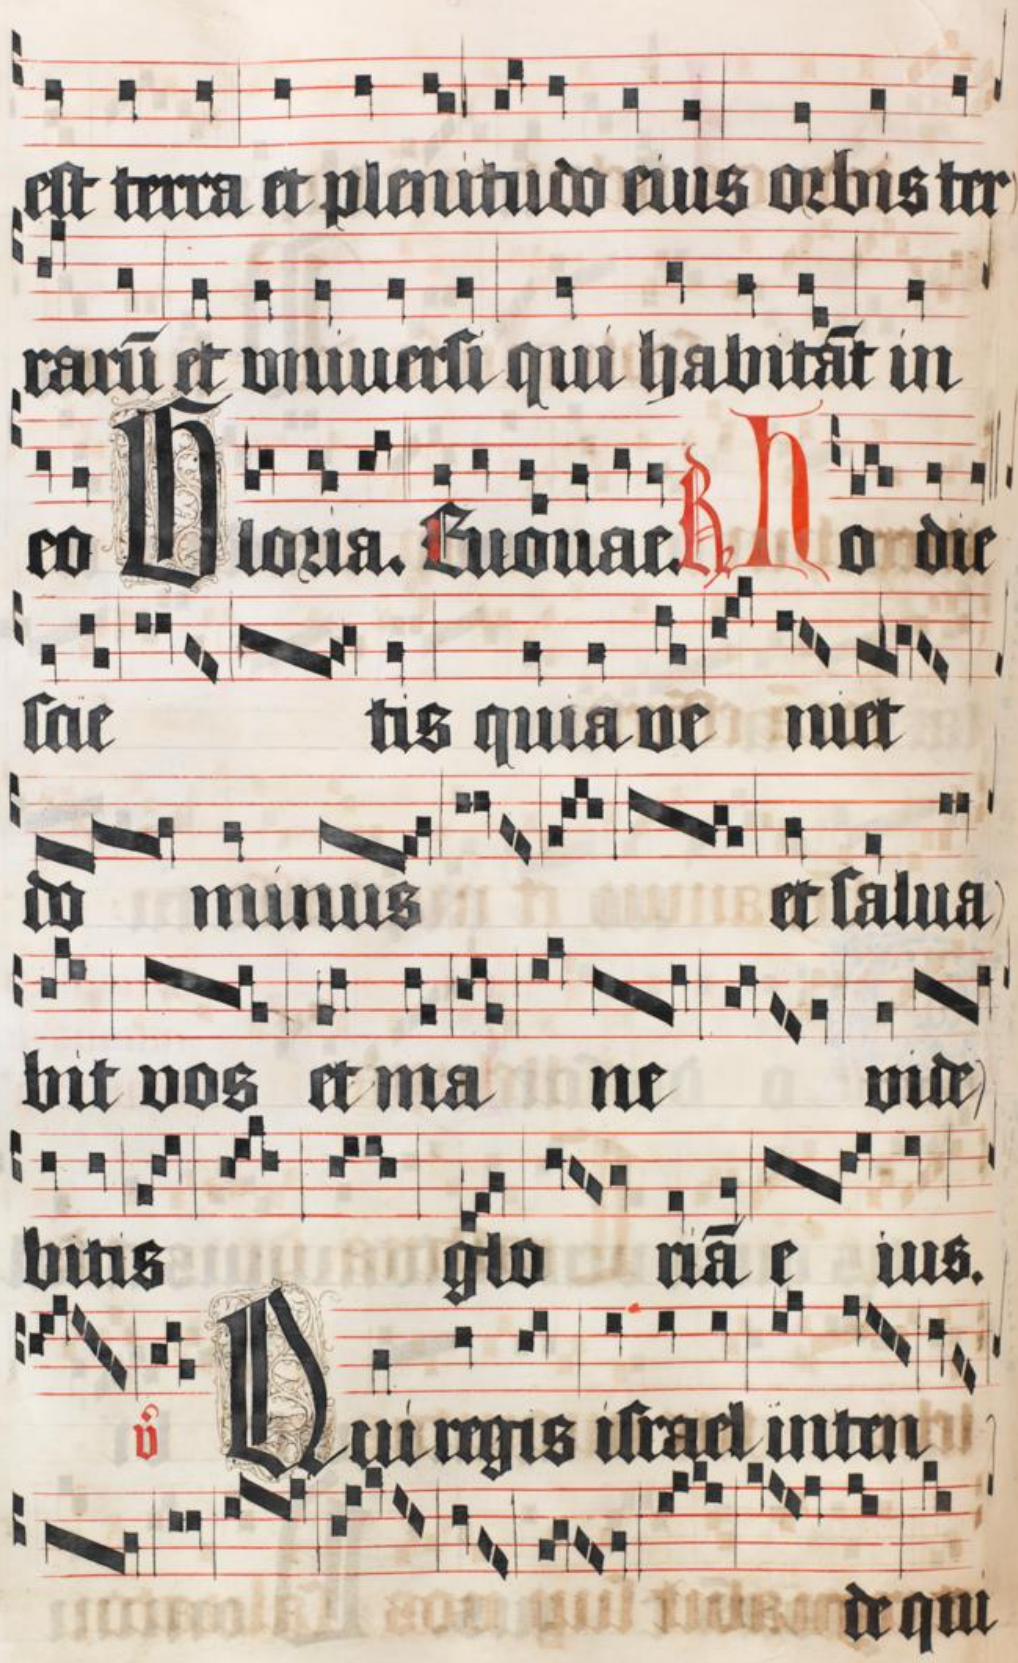 est terra et plenitudo eius orbis ter
rarū et vniuersi qui habitāt in
eo Gloria. Euouae. R̷ Hodie
scie tis quia ve niet
do minus et salua
bit vos et ma ne vide
bitis glo riā e ius.
v̇ Qui regis israel inten
de qui